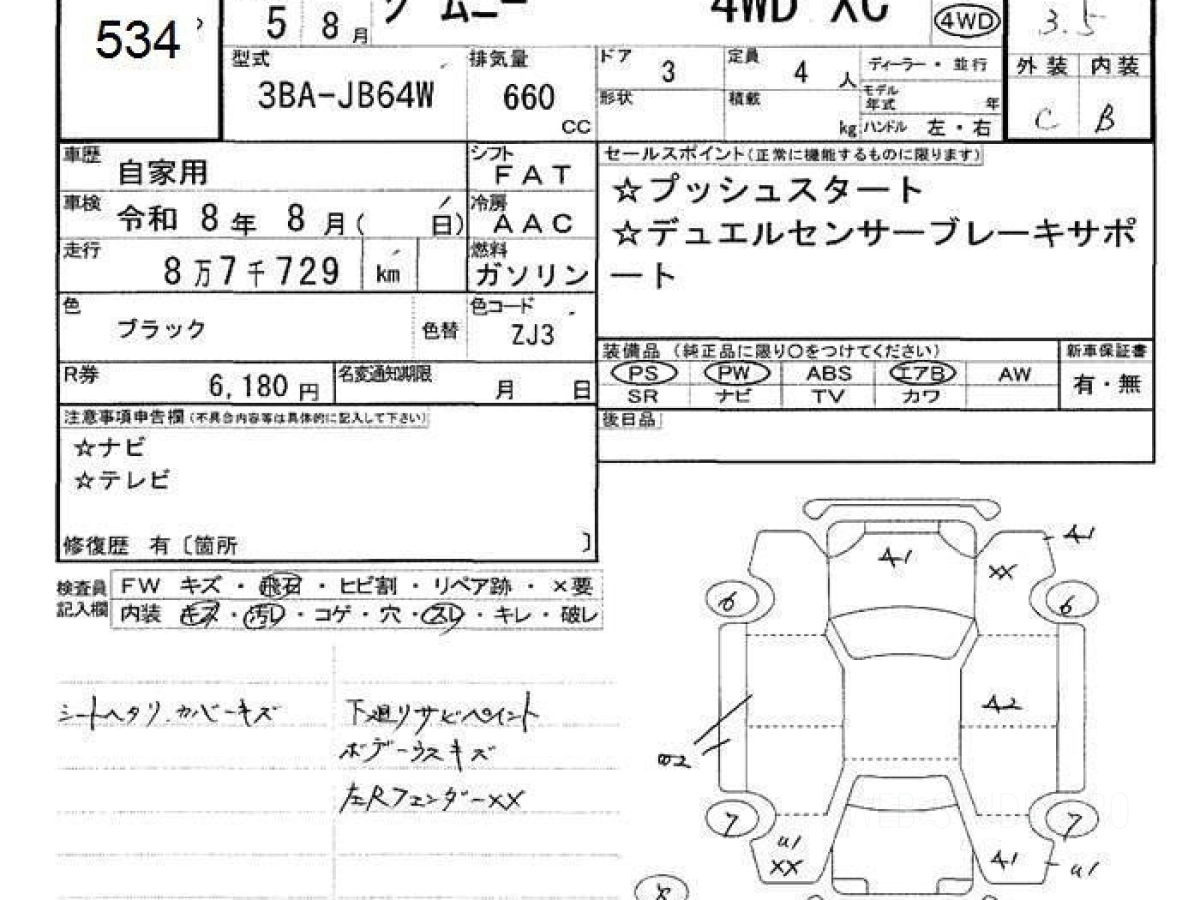 534
5 8 月
ジムニー 4WD XC
4WD
3.5
型式
3BA-JB64W
排気量
660
CC
ドア
3
定員
4 人
ディーラー・並行
形状
積載
kg
モデル年式 年
ハンドル 左・右
外装 内装
C B
車歴
自家用
シフト
FAT
車検
令和 8 年 8 月( 日)
冷房
AAC
走行
8万7千729 km
燃料
ガソリン
色
ブラック
色替
色コード
ZJ3
R券
6,180 円
名変通知期限
月 日
セールスポイント(正常に機能するものに限ります)
☆プッシュスタート
☆デュエルセンサーブレーキサポ
ート
装備品 (純正品に限り○をつけてください)
新車保証書
PS PW ABS エアB AW
有・無
SR ナビ TV カワ
後日品
注意事項申告欄(不具合内容等は具体的に記入して下さい)
☆ナビ
☆テレビ
修復歴 有〔箇所 〕
検査員
記入欄
FW キズ・飛石・ヒビ割・リペア跡・×要
内装 キズ・汚レ・コゲ・穴・スレ・キレ・破レ
シートヘタリ.カバーキズ
下廻リサビペイント
ボデーウスキズ
左Rフェンダー××
A1
A1
XX
6
6
A2
7
7
U1
XX
A1
U1
8